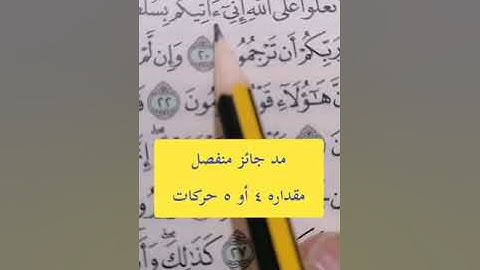 تعلوا على الله إني ءاتيكم بسلطـ
ربكم أن ترجمون ٢٠ وإن لم
هؤلاء قو ون ٢٢
مد جائز منفصل
مقداره ٤ أو ٥ حركات
٢٧ كذلك وأ